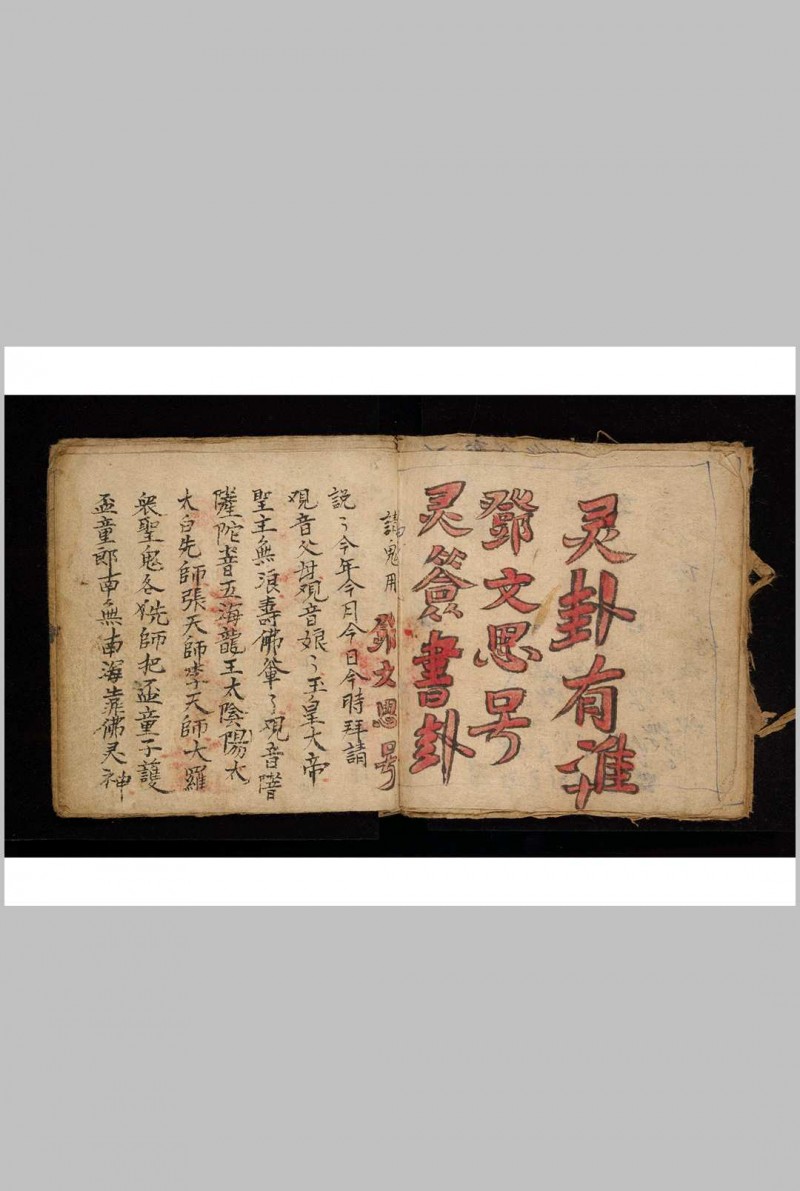 灵卦有准
鄧文思号
灵簽書卦
請鬼用 鄧文思号
説〻今年今月今日今時拜請
观音父母观音娘〻玉皇大帝
聖主無浪壽佛輩〻观音階
薩陀音五海龍王太陰陽太
太白先師張天師李天師大羅
衆聖鬼各先師把盃童子護
盃童郎南無南海靠佛灵神